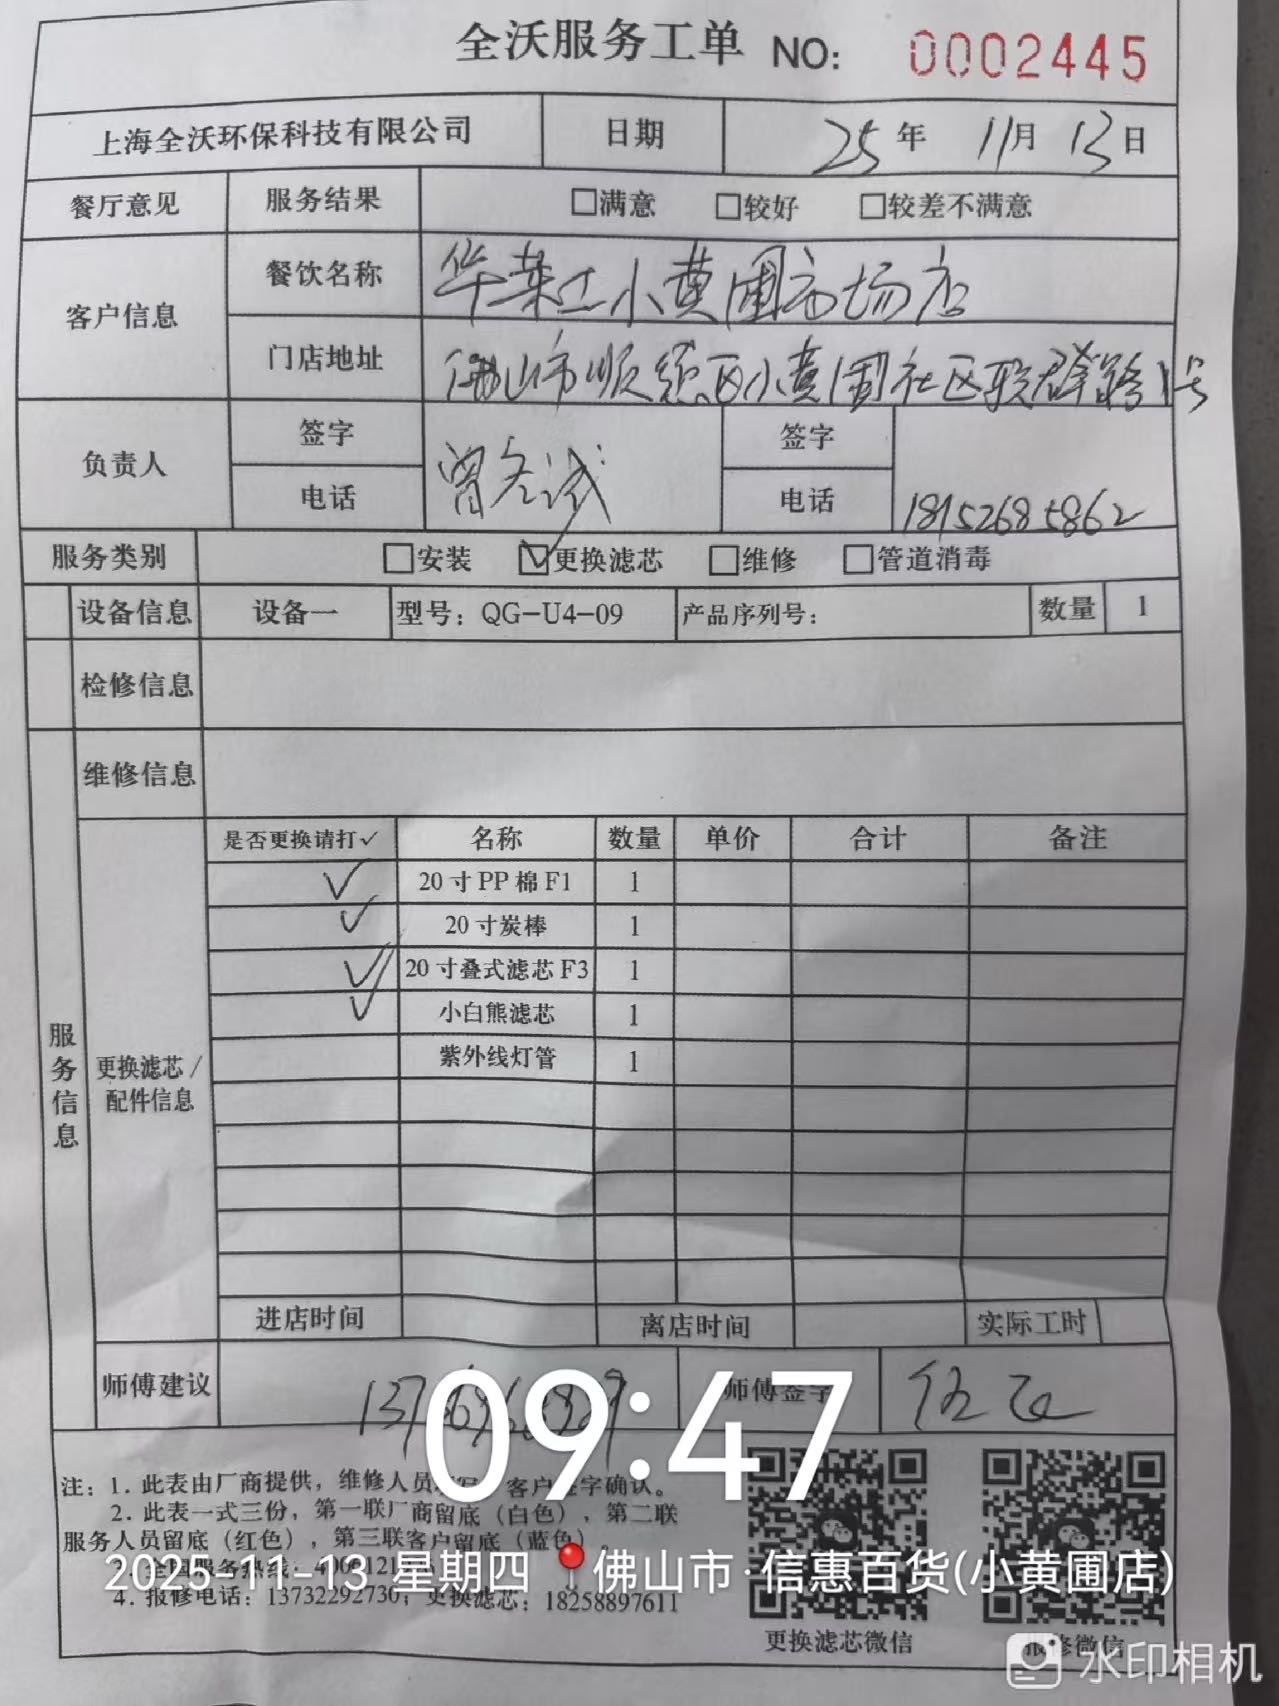 全沃服务工单 NO: 0002445
上海全沃环保科技有限公司 日期 25年 11月 13日
餐厅意见 服务结果 □满意 □较好 □较差不满意
客户信息 餐饮名称 华莱士小黄圃市场店
门店地址 佛山市顺德区小黄圃社区联群路1号
负责人 签字 签字
电话 电话 18152685862
服务类别 □安装 ☑更换滤芯 □维修 □管道消毒
设备信息 设备一 型号：QG-U4-09 产品序列号： 数量 1
检修信息
维修信息
是否更换请打✓ 名称 数量 单价 合计 备注
✓ 20寸PP棉F1 1
✓ 20寸炭棒 1
✓ 20寸叠式滤芯F3 1
✓ 小白熊滤芯 1
紫外线灯管 1
服务信息
更换滤芯/
配件信息
进店时间 离店时间 实际工时
师傅建议 师傅签字
09:47
注：1. 此表由厂商提供，维修人员 客户签字确认。
2. 此表一式三份，第一联厂商留底（白色），第二联
服务人员留底（红色），第三联客户留底（蓝色）。
全国服务热线：
2025-11-13 星期四 佛山市·信惠百货(小黄圃店)
4. 报修电话：13732292730；更换滤芯：18258897611
更换滤芯微信 报修微信
水印相机